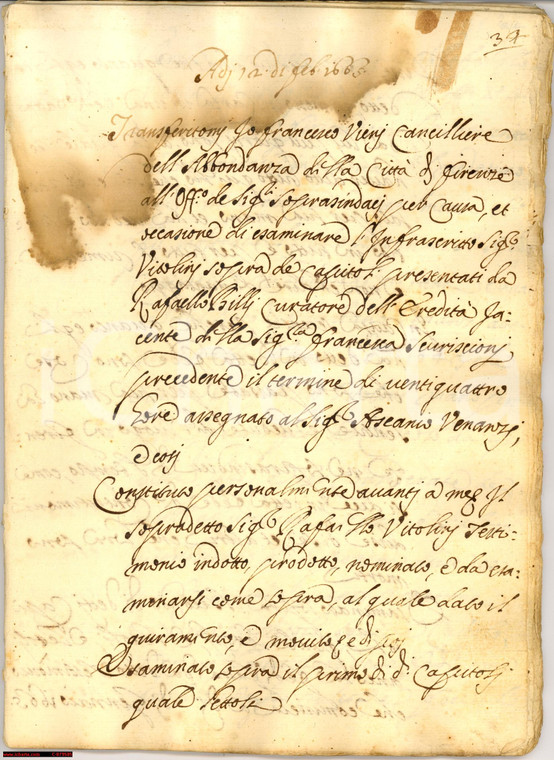 34
Adj 12 di feb: 1663
Transferitomj Jo francesco Vierj Cancelliere
dell'Abbondanza della Città dj firenze
all'Off.o de Sig.ri soprasindacj per causa, et
occasione di esaminare l'Infrascritto Sig.r
Vitolinj sopra de Capitoli presentati da
Rafaello Billj Curatore dell'Eredità Ja-
cente della Sig.ra francesca
precedente il termine di ventiquattro
hore assegnato al Sig.r Ascanio Venanzj,
e così
Constituto personalmente avanti a me Il
sopradetto Sig.r Rafaello Vitolinj Testi-
monio indotto, prodotto, nominato, e da esa-
minarsi come sopra, al quale dato il
giuramento, e
Esaminato sopra il primo di d.i Capitolj
quale lettoli